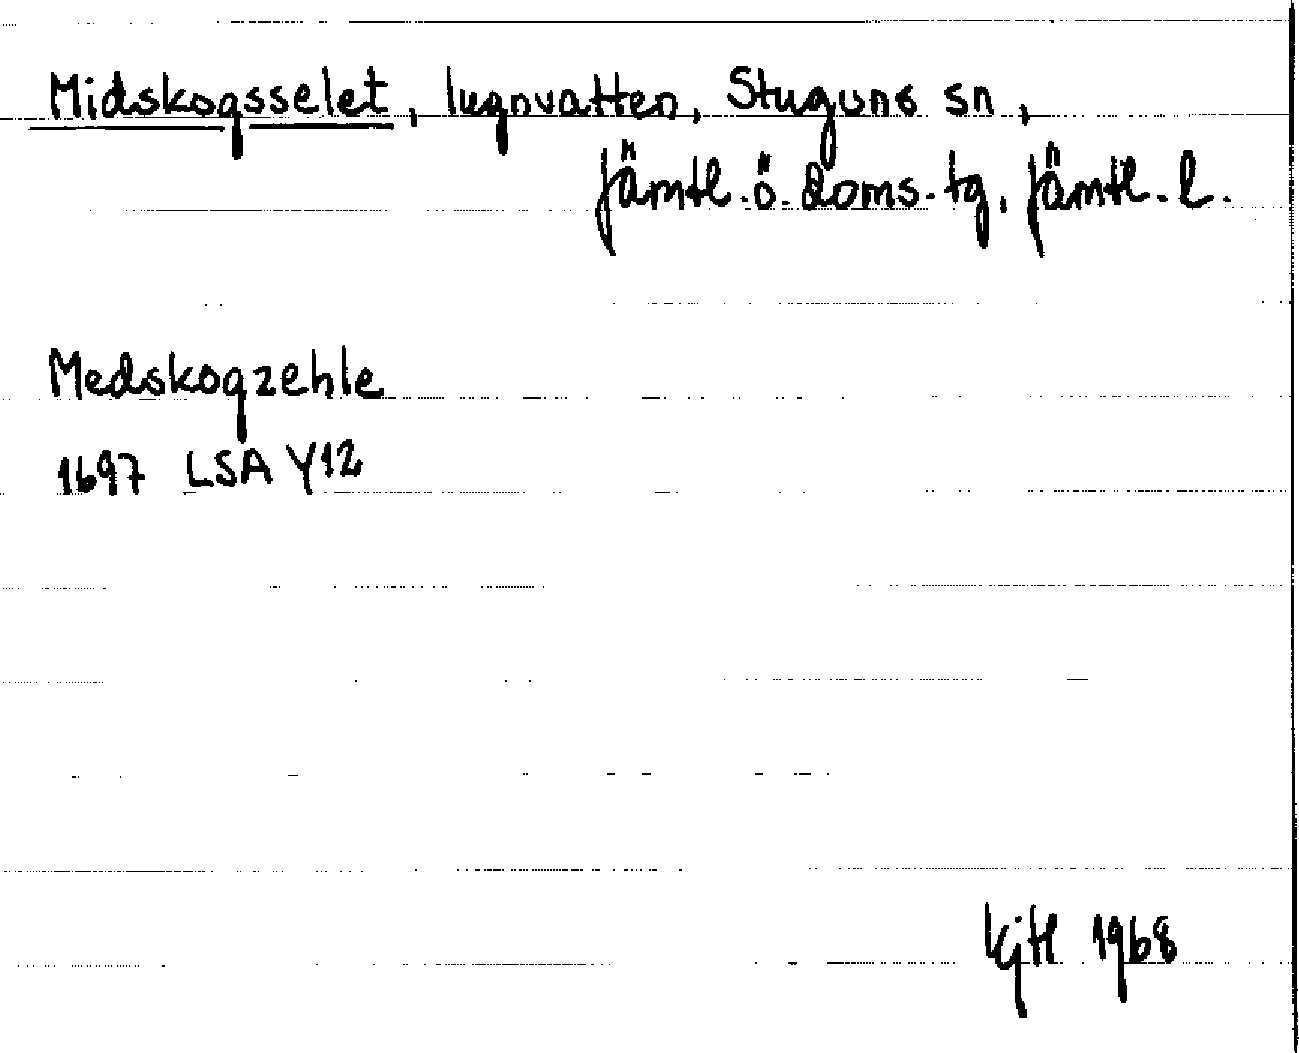 Midskogsselet, lugnvatten, Stuguns sn,
Jämtl. ö. doms. tg, Jämtl. l.
Medskogzehle
1697 LSA Y12
1968